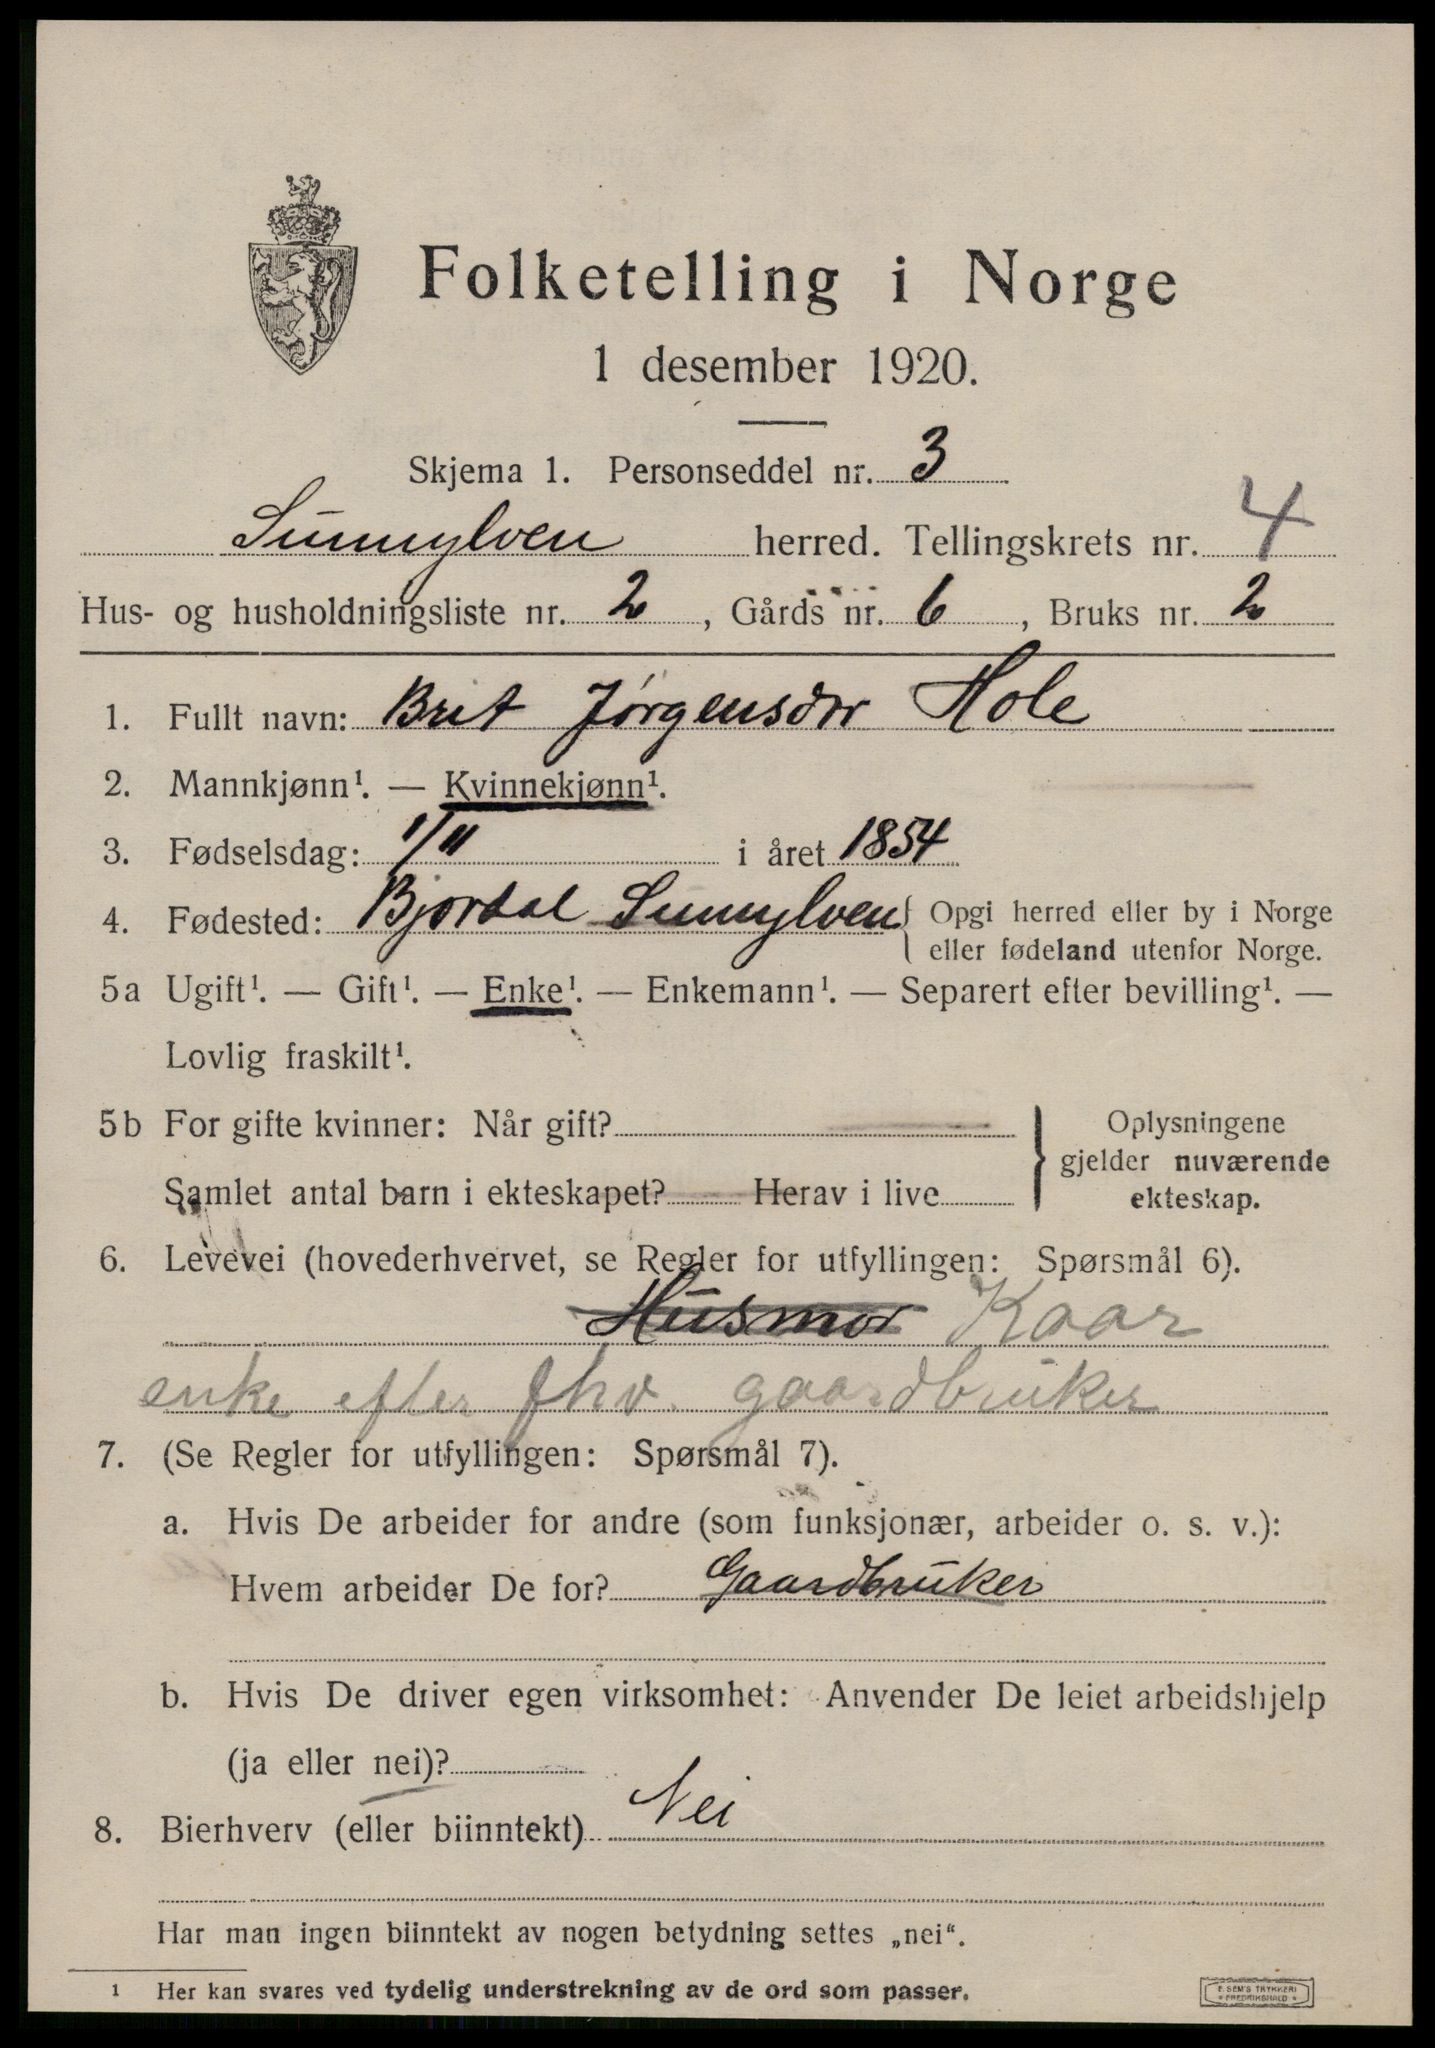 Folketelling i Norge
1 desember 1920.
Skjema 1. Personseddel nr. 3
Sunnylven herred. Tellingskrets nr. 4
Hus- og husholdningsliste nr. 2, Gårds nr. 6, Bruks nr. 2
1. Fullt navn: Brit Jørgensdtr Hole
2. Mannkjønn¹. — Kvinnekjønn¹.
3. Fødselsdag: 1/11 i året 1854
4. Fødested: Bjørdal Sunnylven { Opgi herred eller by i Norge
eller fødeland utenfor Norge.
5a Ugift¹. — Gift¹. — Enke¹. — Enkemann¹. — Separert efter bevilling¹. —
Lovlig fraskilt¹.
5b For gifte kvinner: Når gift?
Samlet antal barn i ekteskapet? Herav i live
} Oplysningene
gjelder nuværende
ekteskap.
6. Levevei (hovederhvervet, se Regler for utfyllingen: Spørsmål 6).
Husmor Kaar
enke efter fhv. gaardbruker
7. (Se Regler for utfyllingen: Spørsmål 7).
a. Hvis De arbeider for andre (som funksjonær, arbeider o. s. v.):
Hvem arbeider De for? Gaardbruker
b. Hvis De driver egen virksomhet: Anvender De leiet arbeidshjelp
(ja eller nei)?
8. Bierhverv (eller biinntekt) Nei
Har man ingen biinntekt av nogen betydning settes „nei“.
1 Her kan svares ved tydelig understrekning av de ord som passer.
E. SEM'S TRYKKERI
FREDRIKSHALD